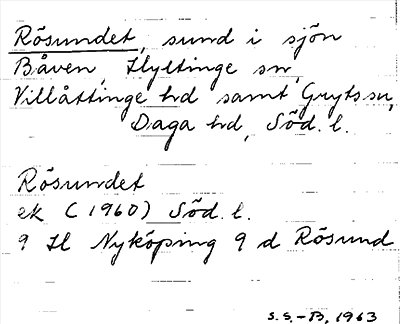 Rösundet, sund i sjön
Båven, Hyltinge sn,
Villåttinge hd samt Gryts sn,
Daga hd, Söd. l.
Rösundet
ek (1960) Söd. l.
9 H Nyköping 9 d Rösund
S.S.-B. 1963